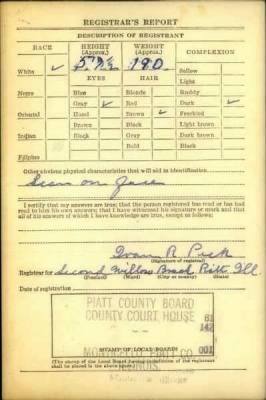 REGISTRAR'S REPORT
DESCRIPTION OF REGISTRANT
RACE HEIGHT (Approx.) WEIGHT (Approx.) COMPLEXION
White ✓ 190 Sallow
EYES HAIR Light
Negro Blue Blonde Ruddy
Gray ✓ Red Dark ✓
Oriental Hazel Brown ✓ Freckled
Brown Black Light brown
Indian Black Gray Dark brown
Bald Black
Filipino
Other obvious physical characteristics that will aid in identification
Scar on face
I certify that my answers are true; that the person registered has read or has had read to him his own answers; that I have witnessed his signature or mark and that all of his answers of which I have knowledge are true, except as follows:
R. Peck
(Signature of registrar)
Registrar for Second Willow Branch Piatt Ill.
(Precinct) (Ward) (City or county) (State)
Date of registration
PIATT COUNTY BOARD 61
COUNTY COURT HOUSE 147
001
STAMP OF LOCAL BOARD
MONTICELLO, PIATT CO.
ILLINOIS.
(The stamp of the Local Board having jurisdiction of the registrant shall be placed in the above space.)